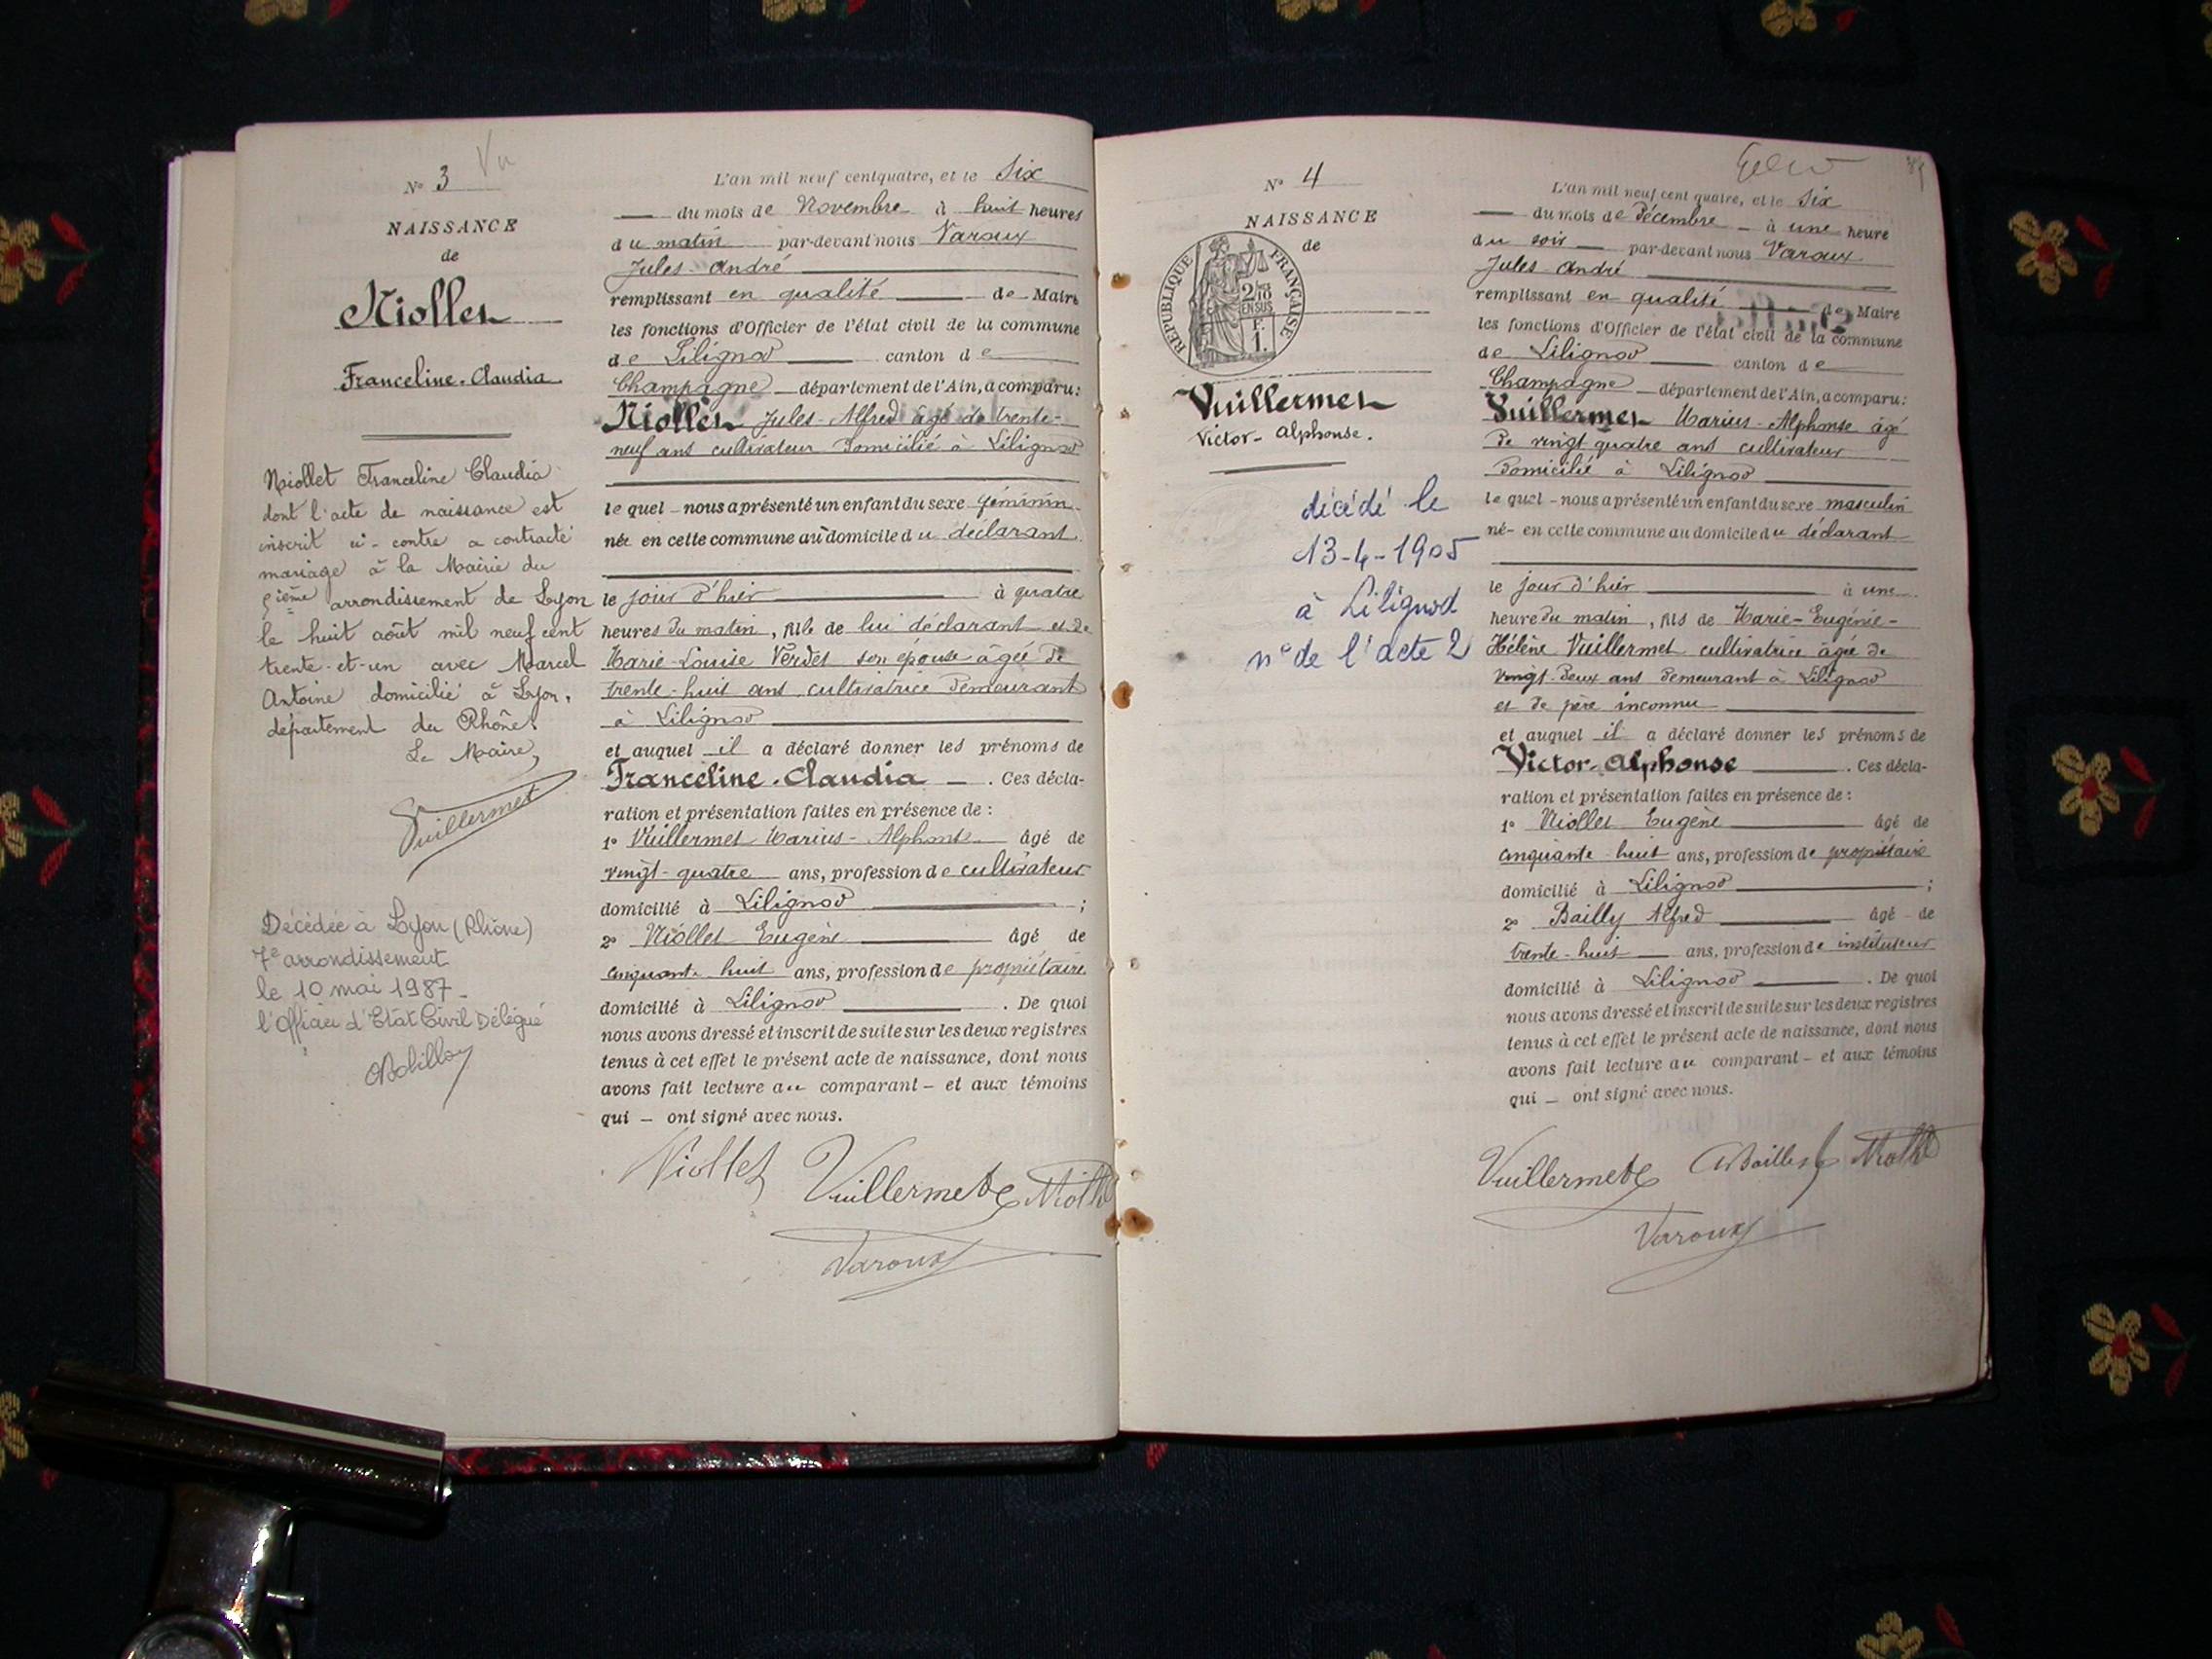 N° 3
Vu
NAISSANCE
de
Niollet
Franceline-Claudia
Niollet Franceline Claudia
dont l'acte de naissance est
inscrit ci-contre a contracté
mariage à la Mairie du
arrondissement de Lyon
le huit août mil neuf cent
trente-et-un avec Marcel
Antoine domicilié à Lyon,
département du Rhône.
Le Maire,
Vuillermet
Décédée à Lyon (Rhône)
7e arrondissement
le 10 mai 1987_
l'Officier d'Etat Civil Délégué
L'an mil neuf cent quatre, et le Six
du mois de Novembre à huit heures
du matin par-devant nous Varoux
Jules-André
remplissant en qualité de Maire
les fonctions d'Officier de l'état civil de la commune
de Lilignod canton de
Champagne département de l'Ain, a comparu:
Niollet Jules-Alfred âgé de trente-
neuf ans cultivateur domicilié à Lilignod
le quel - nous a présenté un enfant du sexe féminin
née en cette commune au domicile du déclarant
le jour d'hier à quatre
heures du matin, fille de lui déclarant et de
Marie-Louise Verdet son épouse âgée de
trente-huit ans, cultivatrice demeurant
à Lilignod
et auquel il a déclaré donner les prénoms de
Franceline-Claudia. Ces décla-
ration et présentation faites en présence de :
1° Vuillermet Marius-Alphonse âgé de
vingt-quatre ans, profession de cultivateur
domicilié à Lilignod ;
2° Niollet Eugène âgé de
cinquante huit ans, profession de propriétaire
domicilié à Lilignod. De quoi
nous avons dressé et inscrit de suite sur les deux registres
tenus à cet effet le présent acte de naissance, dont nous
avons fait lecture au comparant - et aux témoins
qui - ont signé avec nous.
Niollet Vuillermet
Varoux
N° 4
NAISSANCE
de
RÉPUBLIQUE FRANÇAISE
2/10
EN SUS
F.
1.
Vuillermet
Victor-Alphonse.
décédé le
13-4-1905
à Lilignod
n° de l'acte 2
L'an mil neuf cent quatre, et le Six
du mois de Décembre à une heure
du soir par-devant nous Varoux
Jules-André
remplissant en qualité de Maire
les fonctions d'Officier de l'état civil de la commune
de Lilignod canton de
Champagne département de l'Ain, a comparu:
Vuillermet Marius-Alphonse âgé
de vingt quatre ans cultivateur
domicilié à Lilignod
le quel - nous a présenté un enfant du sexe masculin
né- en cette commune au domicile du déclarant
le jour d'hier à une
heure du matin, fils de Marie-Eugénie-
Hélène Vuillermet cultivatrice âgée de
vingt-deux ans demeurant à Lilignod
et de père inconnu
et auquel il a déclaré donner les prénoms de
Victor-Alphonse. Ces décla-
ration et présentation faites en présence de :
1° Niollet Eugène âgé de
cinquante-huit ans, profession de propriétaire
domicilié à Lilignod ;
2° Bailly Alfred âgé de
trente-huit ans, profession de instituteur
domicilié à Lilignod. De quoi
nous avons dressé et inscrit de suite sur les deux registres
tenus à cet effet le présent acte de naissance, dont nous
avons fait lecture au comparant - et aux témoins
qui - ont signé avec nous.
Vuillermet ABailly
Varoux